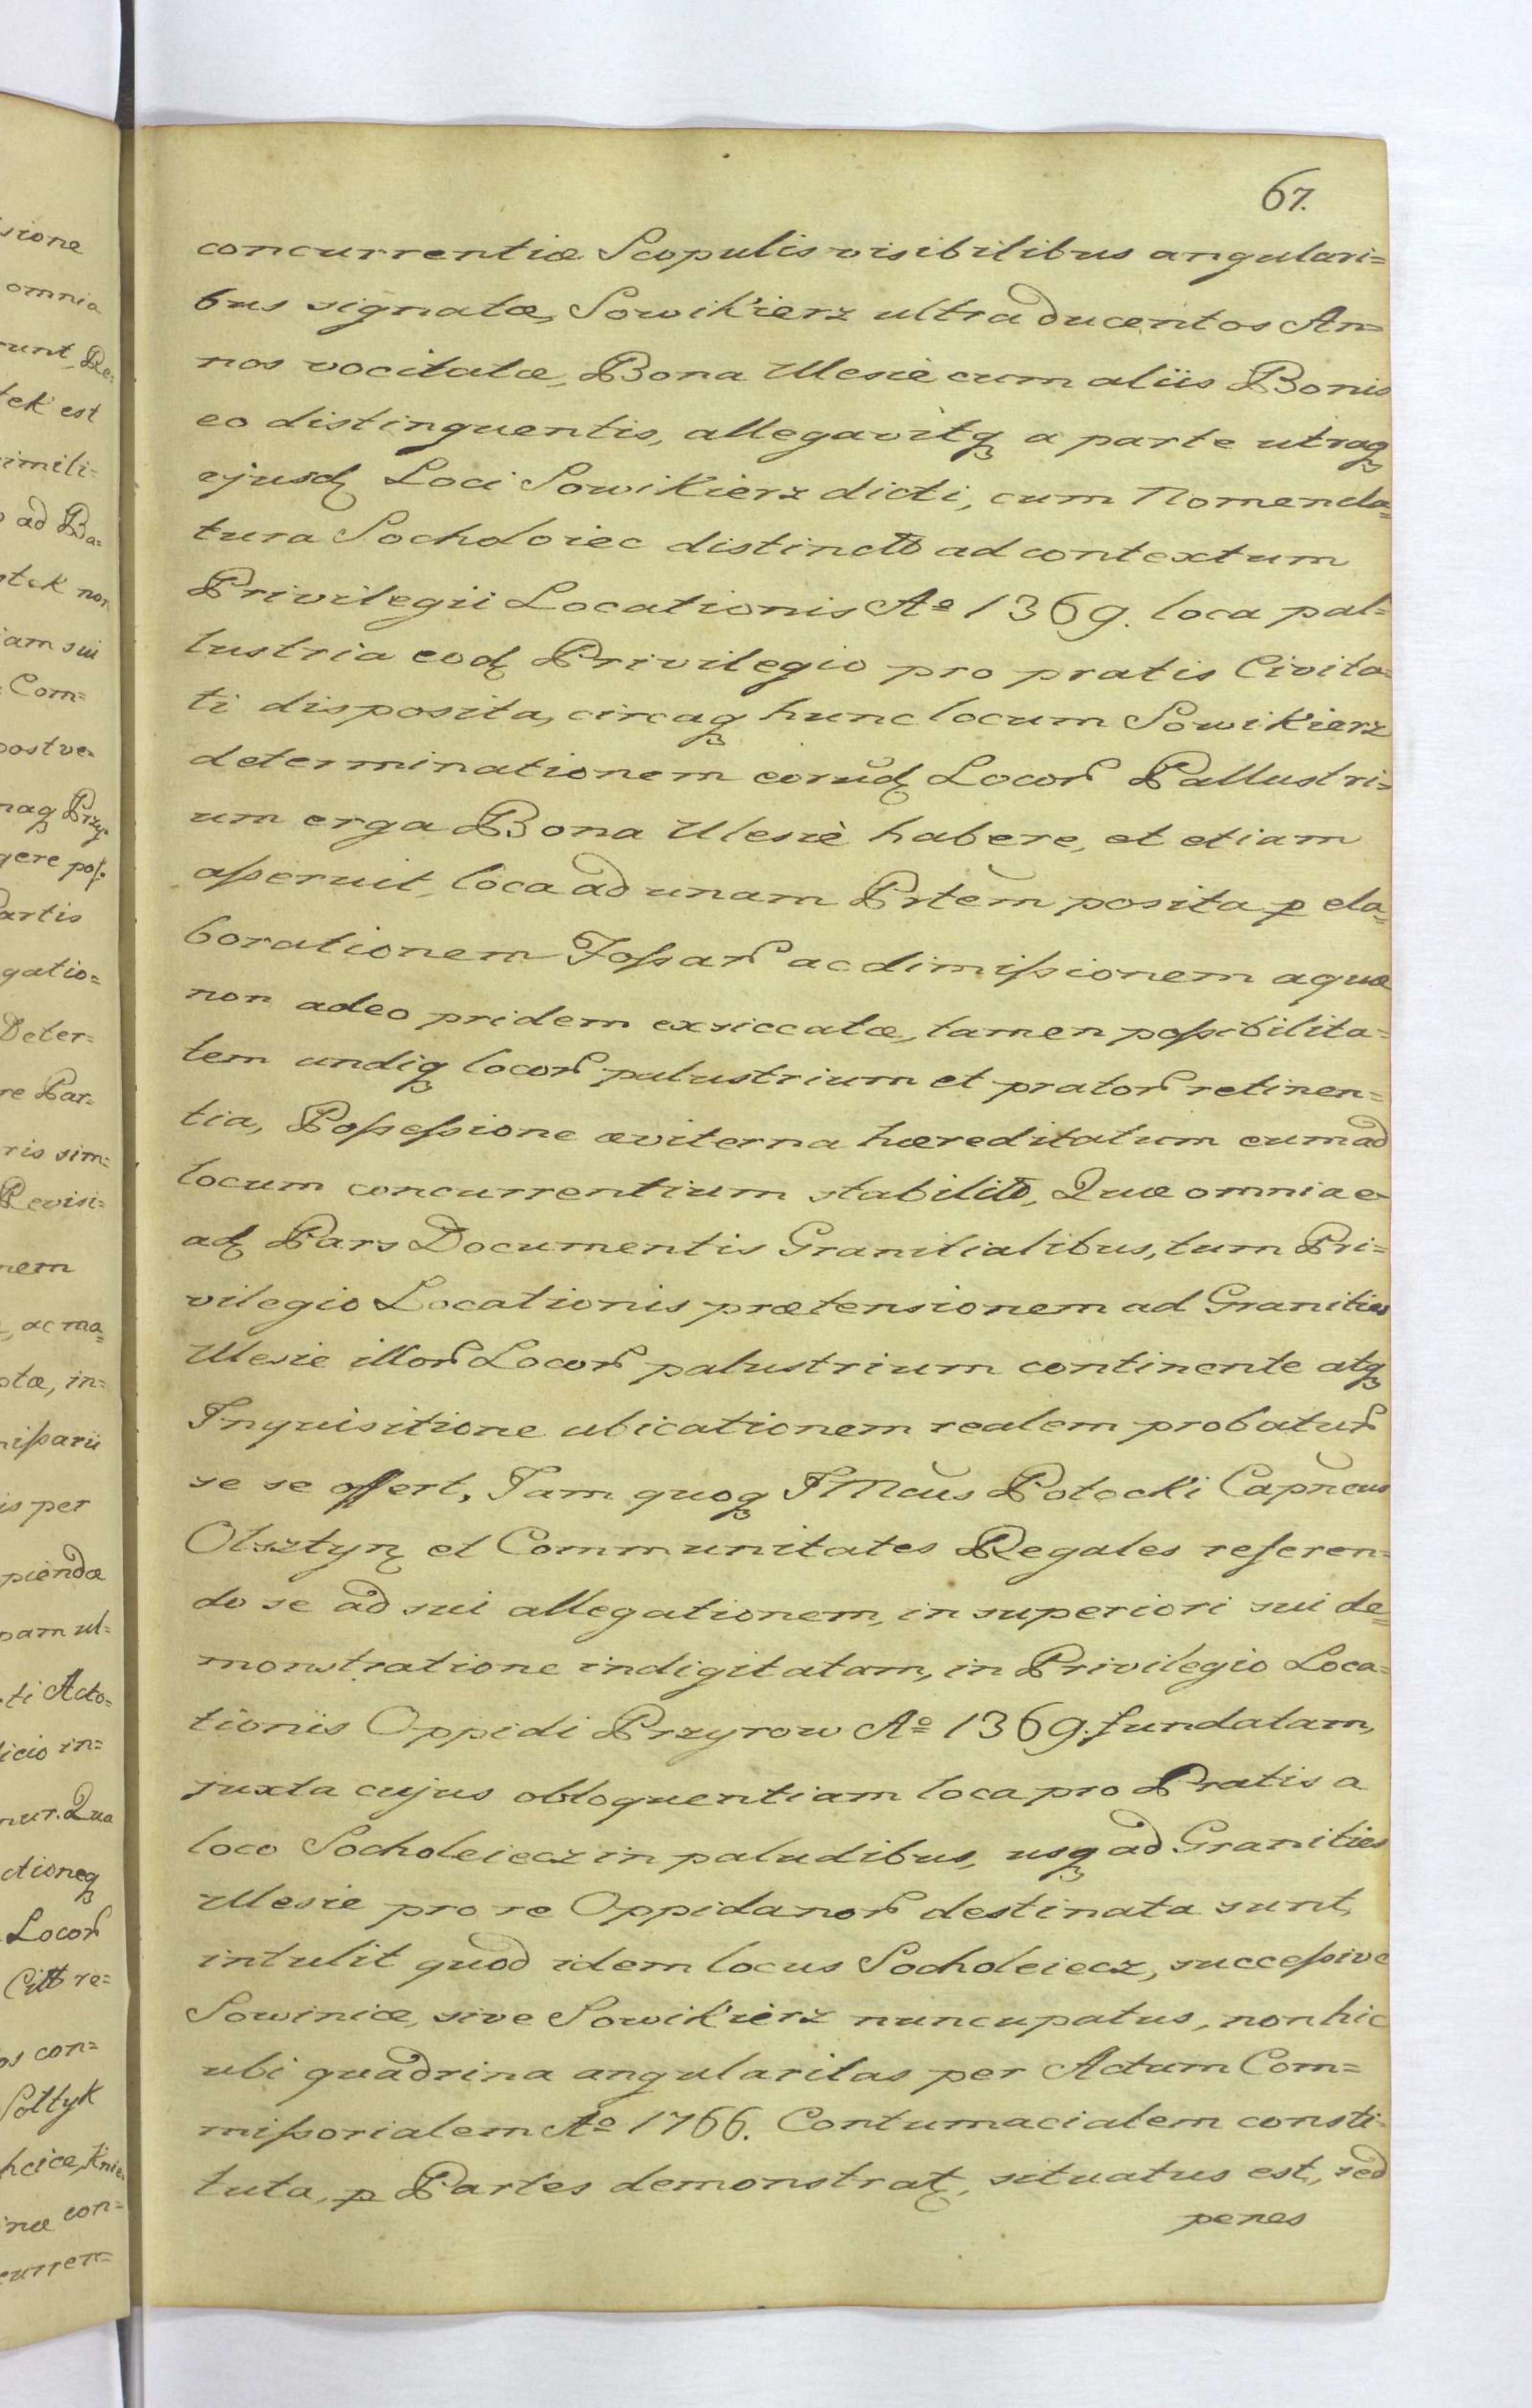 67.
concurrentiæ Scopulis visibilibus angulari=
bus signatæ, Sowikierz ultra ducentos An=
nos vocitatæ, Bona Ulesie cum aliis Bonis
eo distinguentis, allegavitq a parte utraq
ejusd Loci Sowikierz dicti, cum Nomencla=
tura Socholoiec distincto ad contextum
Privilegii Locationis Aº 1369. loca pal=
lustria eod Privilegio pro pratis Civita=
ti disposita, circaq hunc locum Sowikierz
determinationem eorūd Locor Pallustri=
um erga Bona Ulesiè habere, et etiam
asseruit, loca ad unam Prtem posita p ela=
borationem Fossar ac dimissionem aquæ
non adeo pridem exsiccatæ, tamen possibilita=
tem undiq locor palustrium et prator retinen=
tia, Possessione æviterna hæreditatum cum ad
locum concurrentium stabilito, Quæ omnia e=
ad Pars Documentis Granitialibus, tum Pri=
vilegio Locationis prætensionem ad Granities
Ulesie illor Locor palustrium continente atq
Inquisitione ubicationem realem probatur
se se offert, Iam quoq IMcus Potocki Capneus
Olsztyn et Communitates Regales referen=
do se ad sui allegationem, in superiori sui de=
monstratione indigitatam, in Privilegio Loca=
tionis Oppidi Przyrow Aº 1369. fundatam,
juxta cujus obloquentiam loca pro Pratis a
loco Socholeiecz in paludibus, usq ad Granities
Ulesie pro re Oppidanor destinata sunt,
intulit quod idem locus Socholeiecz, successive
Sowiniæ, sive Sowikierz nuncupatus, non hic
ubi quadrina angularitas per Actum Com=
missorialem Aº 1766. Contumacialem consti=
tuta, p Partes demonstrat, situatus est, sed
penes
sione
omnia
runt, Re=
tek est
imili=
ad Ba=
tek non
iam sui
Com=
postve=
naq Przy=
gere pos=
Partis
gatio=
Deter=
re Par=
ris sim=
Revisi=
nem
ac ma=
otæ, in=
missarii
is per
piendæ
pam ul=
ti Acto=
icio in=
nur. Qua
ctioneq
Locor
re=
os con=
Soltyk
Knie
inæ con=
curren=